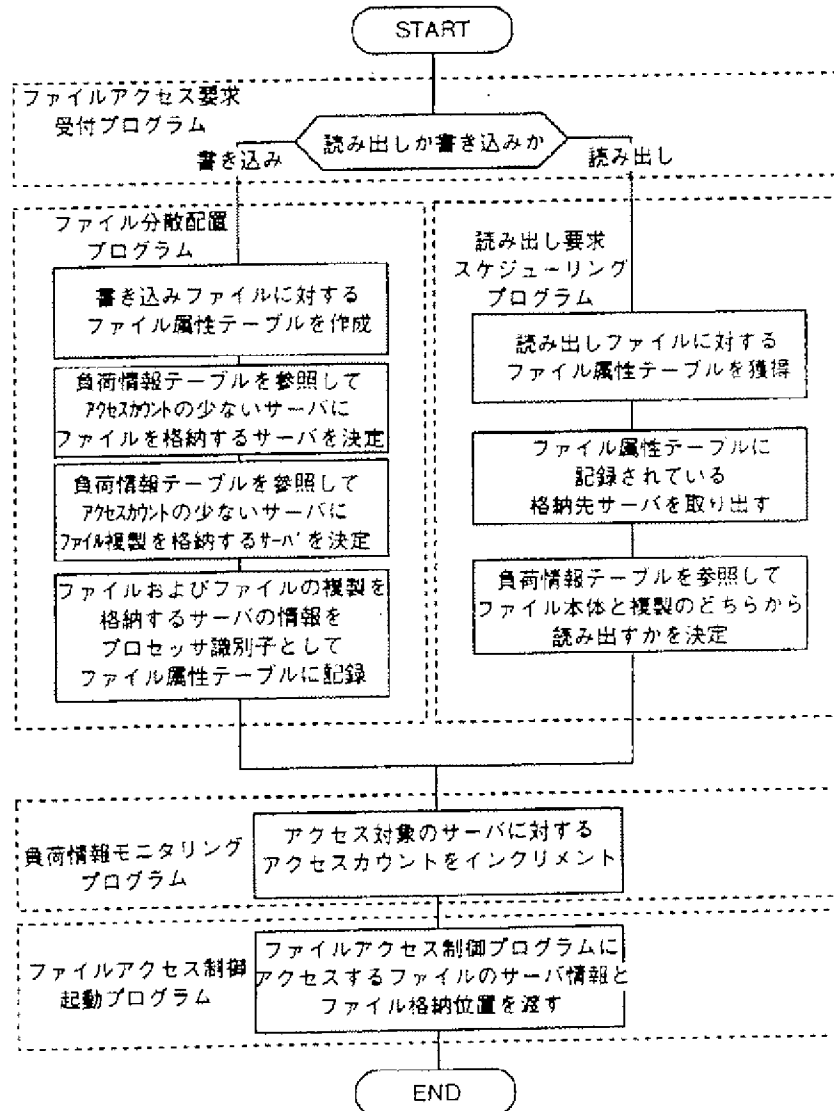 START
ファイルアクセス要求
受付プログラム
読み出しか書き込みか
書き込み
読み出し
ファイル分散配置
プログラム
書き込みファイルに対する
ファイル属性テーブルを作成
負荷情報テーブルを参照して
アクセスカウントの少ないサーバに
ファイルを格納するサーバを決定
負荷情報テーブルを参照して
アクセスカウントの少ないサーバに
ファイル複製を格納するサーバを決定
ファイルおよびファイルの複製を
格納するサーバの情報を
プロセッサ識別子として
ファイル属性テーブルに記録
読み出し要求
スケジューリング
プログラム
読み出しファイルに対する
ファイル属性テーブルを獲得
ファイル属性テーブルに
記録されている
格納先サーバを取り出す
負荷情報テーブルを参照して
ファイル本体と複製のどちらから
読み出すかを決定
負荷情報モニタリング
プログラム
アクセス対象のサーバに対する
アクセスカウントをインクリメント
ファイルアクセス制御
起動プログラム
ファイルアクセス制御プログラムに
アクセスするファイルのサーバ情報と
ファイル格納位置を渡す
END